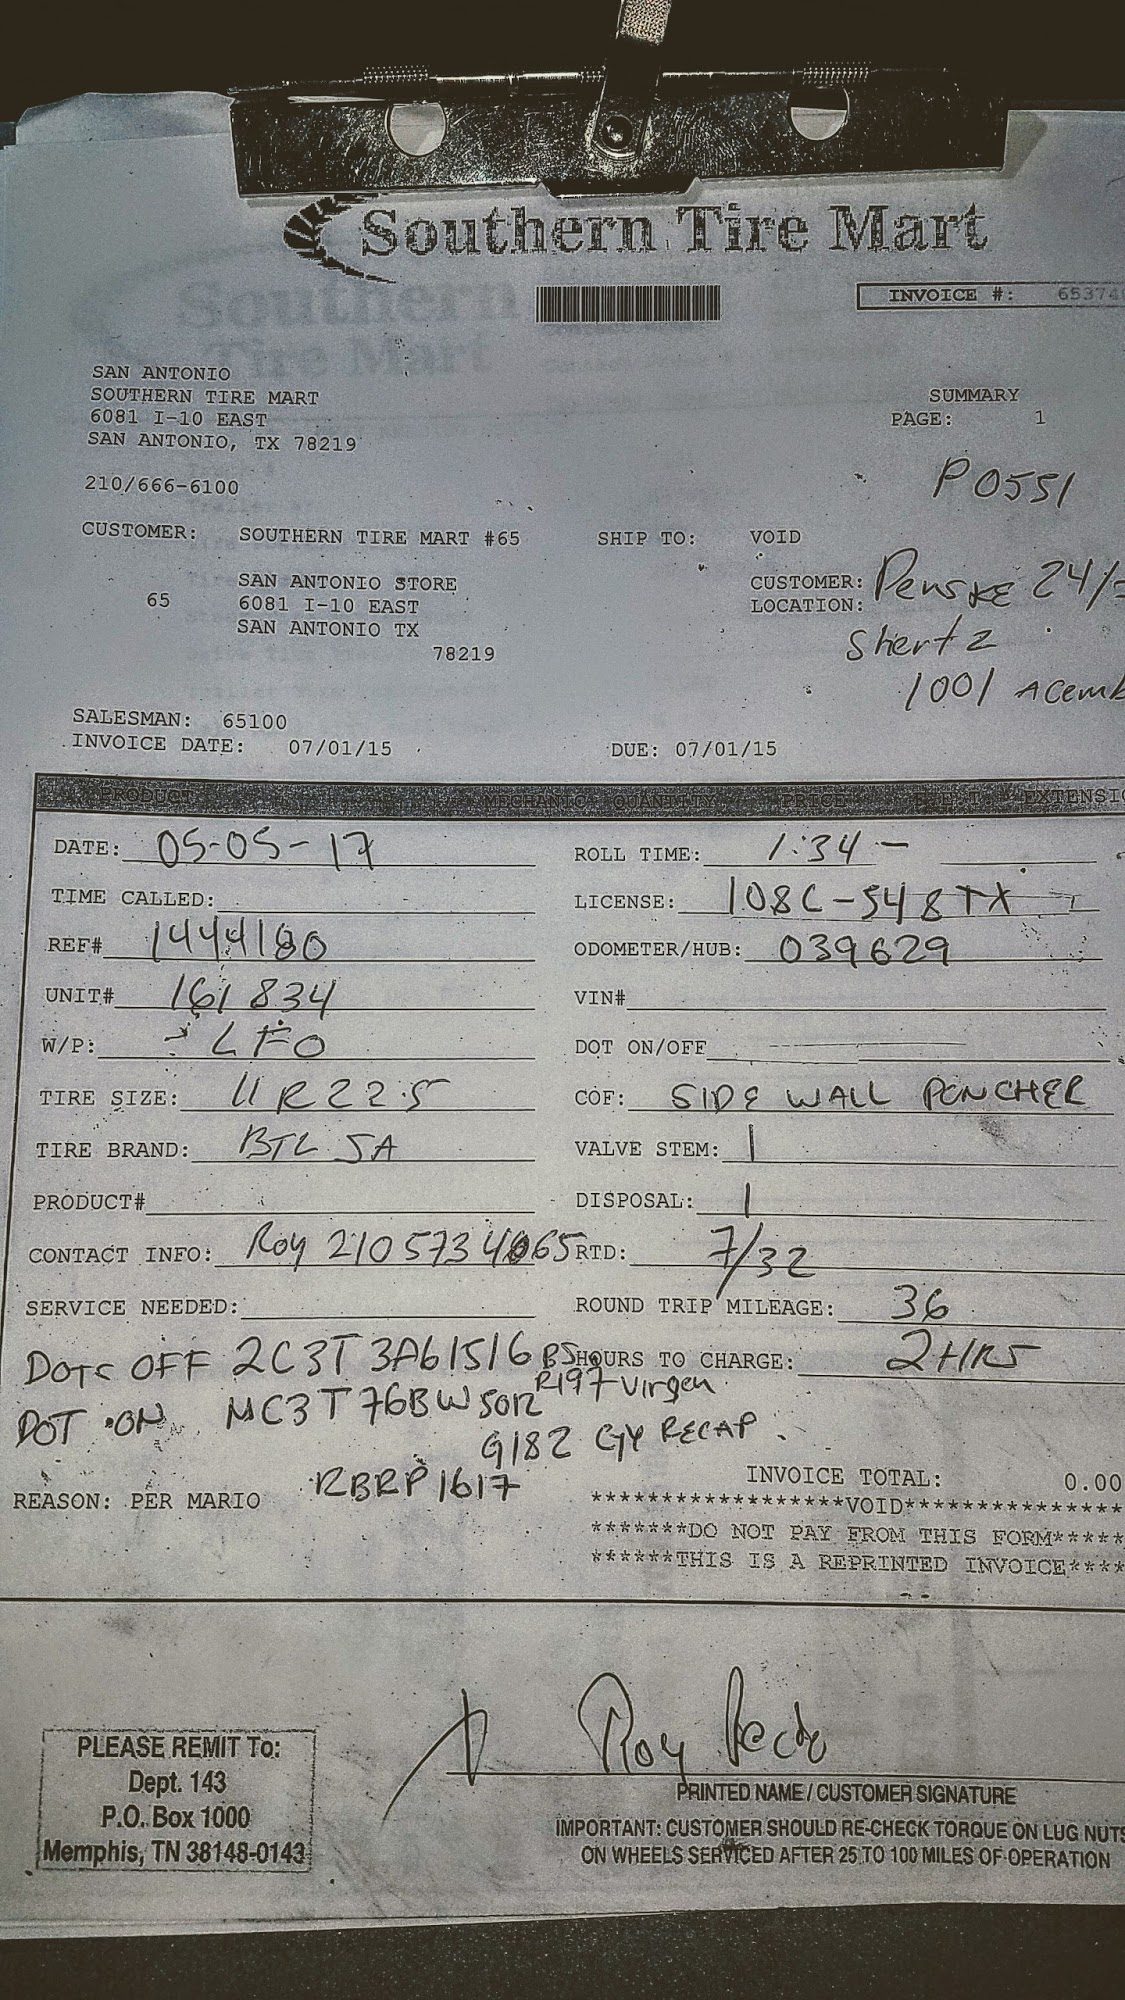 Southern Tire Mart
INVOICE #: 65374
SAN ANTONIO
SOUTHERN TIRE MART
6081 I-10 EAST
SAN ANTONIO, TX 78219
210/666-6100
SUMMARY
PAGE: 1
P0551
CUSTOMER: SOUTHERN TIRE MART #65
65
SAN ANTONIO STORE
6081 I-10 EAST
SAN ANTONIO TX
78219
SHIP TO: VOID
CUSTOMER: Penske 24/
LOCATION:
Shertz
1001 Acemb
SALESMAN: 65100
INVOICE DATE: 07/01/15 DUE: 07/01/15
PRODUCT MECHANIC QUANTITY PRICE F.E.T. EXTENSI
DATE: 05-05-17 ROLL TIME: 1:34 -
TIME CALLED: LICENSE: 108C-548TX
REF# 1444180 ODOMETER/HUB: 039629
UNIT# 161834 VIN#
W/P: LFO DOT ON/OFF
TIRE SIZE: 11R22.5 COF: SIDE WALL PONCHER
TIRE BRAND: VALVE STEM: 1
PRODUCT# DISPOSAL: 1
CONTACT INFO: Roy 2105734065 RTD: 7/32
SERVICE NEEDED: ROUND TRIP MILEAGE: 36
Dots OFF 2C3T3A61516 BS HOURS TO CHARGE: 2HRS
R197 Virgen
DOT ON MC3T76BW5012
G182 GY RECAP
RBRP1617
INVOICE TOTAL: 0.00
REASON: PER MARIO
******************VOID***************
*******DO NOT PAY FROM THIS FORM*****
******THIS IS A REPRINTED INVOICE****
PLEASE REMIT To:
Dept. 143
P.O. Box 1000
Memphis, TN 38148-0143
Roy
PRINTED NAME / CUSTOMER SIGNATURE
IMPORTANT: CUSTOMER SHOULD RE-CHECK TORQUE ON LUG NUTS
ON WHEELS SERVICED AFTER 25 TO 100 MILES OF OPERATION